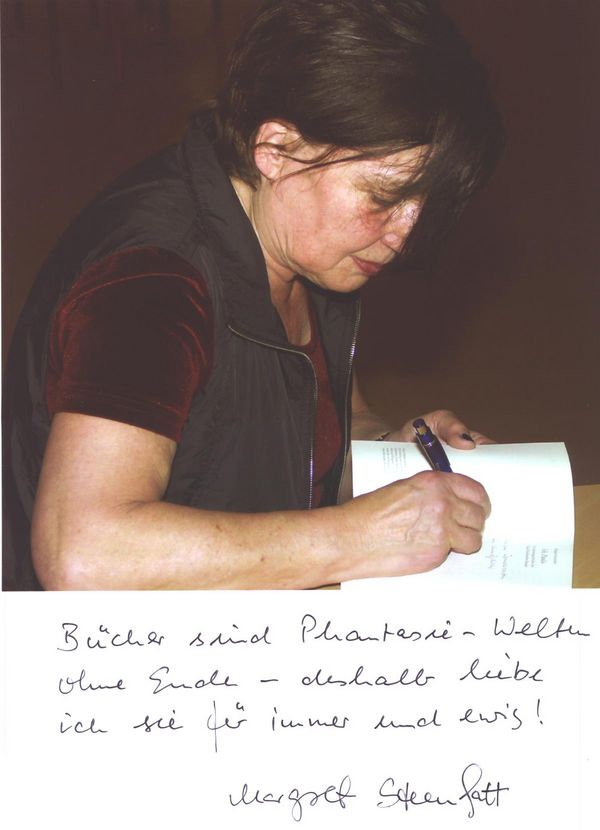 Bücher sind Phantasie-Welten
ohne Ende - deshalb liebe
ich sie für immer und ewig!
Margret Steenfatt